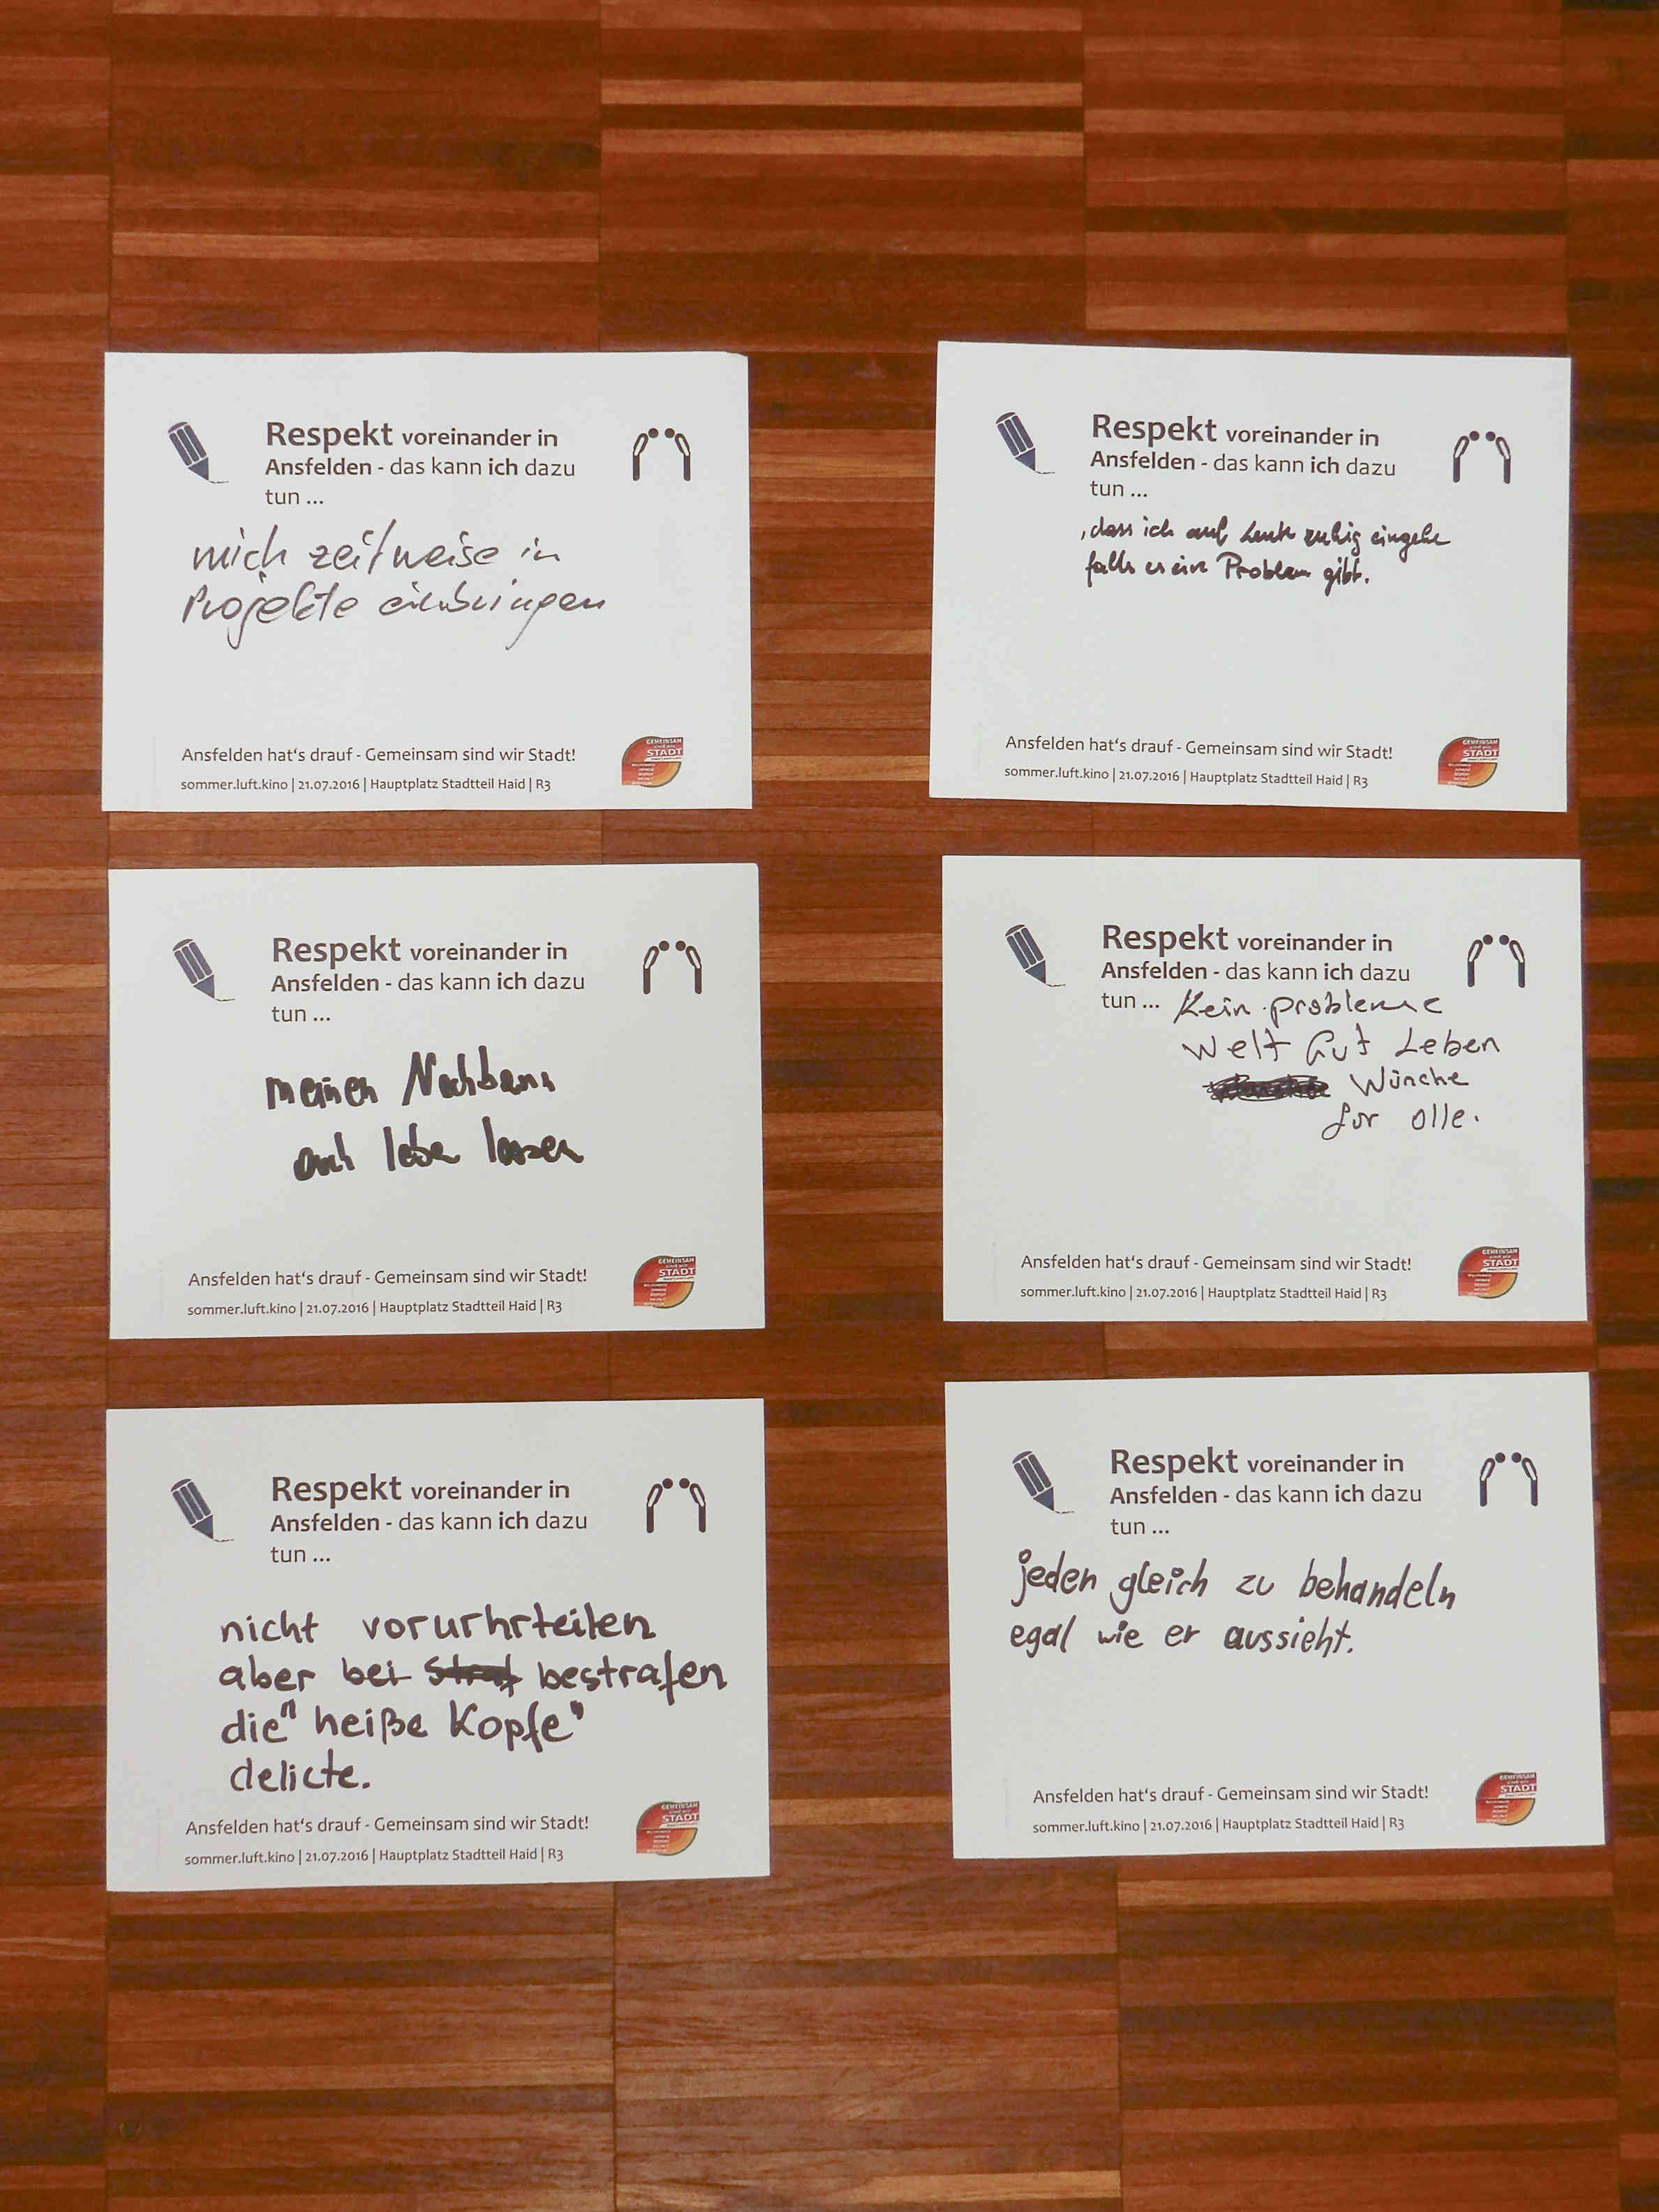 Respekt voreinander in
Ansfelden - das kann ich dazu
tun ...
mich zeitweise in
Projekte einbringen
Ansfelden hat's drauf - Gemeinsam sind wir Stadt!
sommer.luft.kino | 21.07.2016 | Hauptplatz Stadtteil Haid | R3
GEMEINSAM
sind wir
STADT
Respekt voreinander in
Ansfelden - das kann ich dazu
tun ...
, dass ich auf Leute ruhig eingehe
falls es ein Problem gibt.
Ansfelden hat's drauf - Gemeinsam sind wir Stadt!
sommer.luft.kino | 21.07.2016 | Hauptplatz Stadtteil Haid | R3
GEMEINSAM
sind wir
STADT
Respekt voreinander in
Ansfelden - das kann ich dazu
tun ...
meinen Nachbarn
auch leben lassen
Ansfelden hat's drauf - Gemeinsam sind wir Stadt!
sommer.luft.kino | 21.07.2016 | Hauptplatz Stadtteil Haid | R3
GEMEINSAM
sind wir
STADT
Respekt voreinander in
Ansfelden - das kann ich dazu
tun ... Kein probleme
Welt Gut Leben
Wünche
für olle.
Ansfelden hat's drauf - Gemeinsam sind wir Stadt!
sommer.luft.kino | 21.07.2016 | Hauptplatz Stadtteil Haid | R3
GEMEINSAM
sind wir
STADT
Respekt voreinander in
Ansfelden - das kann ich dazu
tun ...
nicht vorurhrteilen
aber bei Straf bestrafen
die "heiße Kopfe"
delicte.
Ansfelden hat's drauf - Gemeinsam sind wir Stadt!
sommer.luft.kino | 21.07.2016 | Hauptplatz Stadtteil Haid | R3
GEMEINSAM
sind wir
STADT
Respekt voreinander in
Ansfelden - das kann ich dazu
tun ...
jeden gleich zu behandeln
egal wie er aussieht.
Ansfelden hat's drauf - Gemeinsam sind wir Stadt!
sommer.luft.kino | 21.07.2016 | Hauptplatz Stadtteil Haid | R3
GEMEINSAM
sind wir
STADT